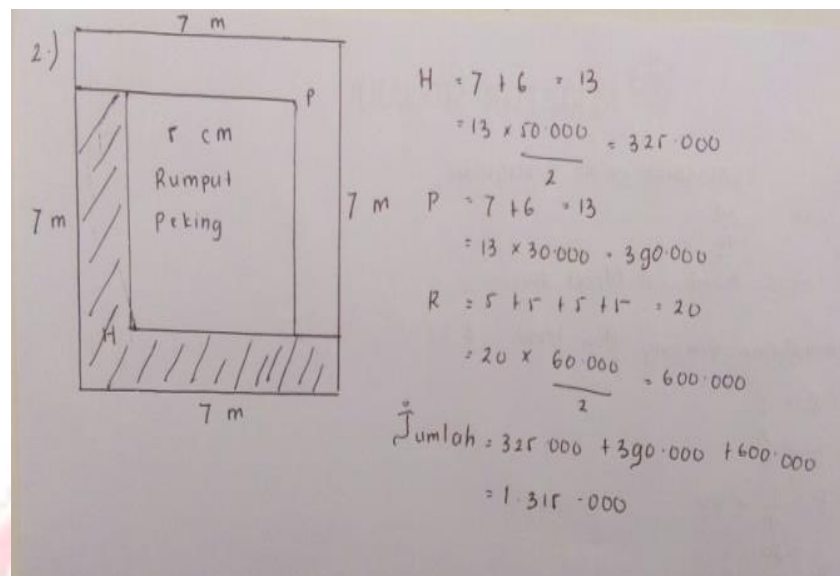 2.)
7 m
P
5 cm
Rumput
Peking
7 m
7 m
H
7 m
H = 7 + 6 = 13
= 13 × 50.000 / 2 = 325.000
P = 7 + 6 = 13
= 13 × 30.000 = 390.000
R = 5 + 5 + 5 + 5 = 20
= 20 × 60.000 / 2 = 600.000
Jumlah = 325.000 + 390.000 + 600.000
= 1.315.000